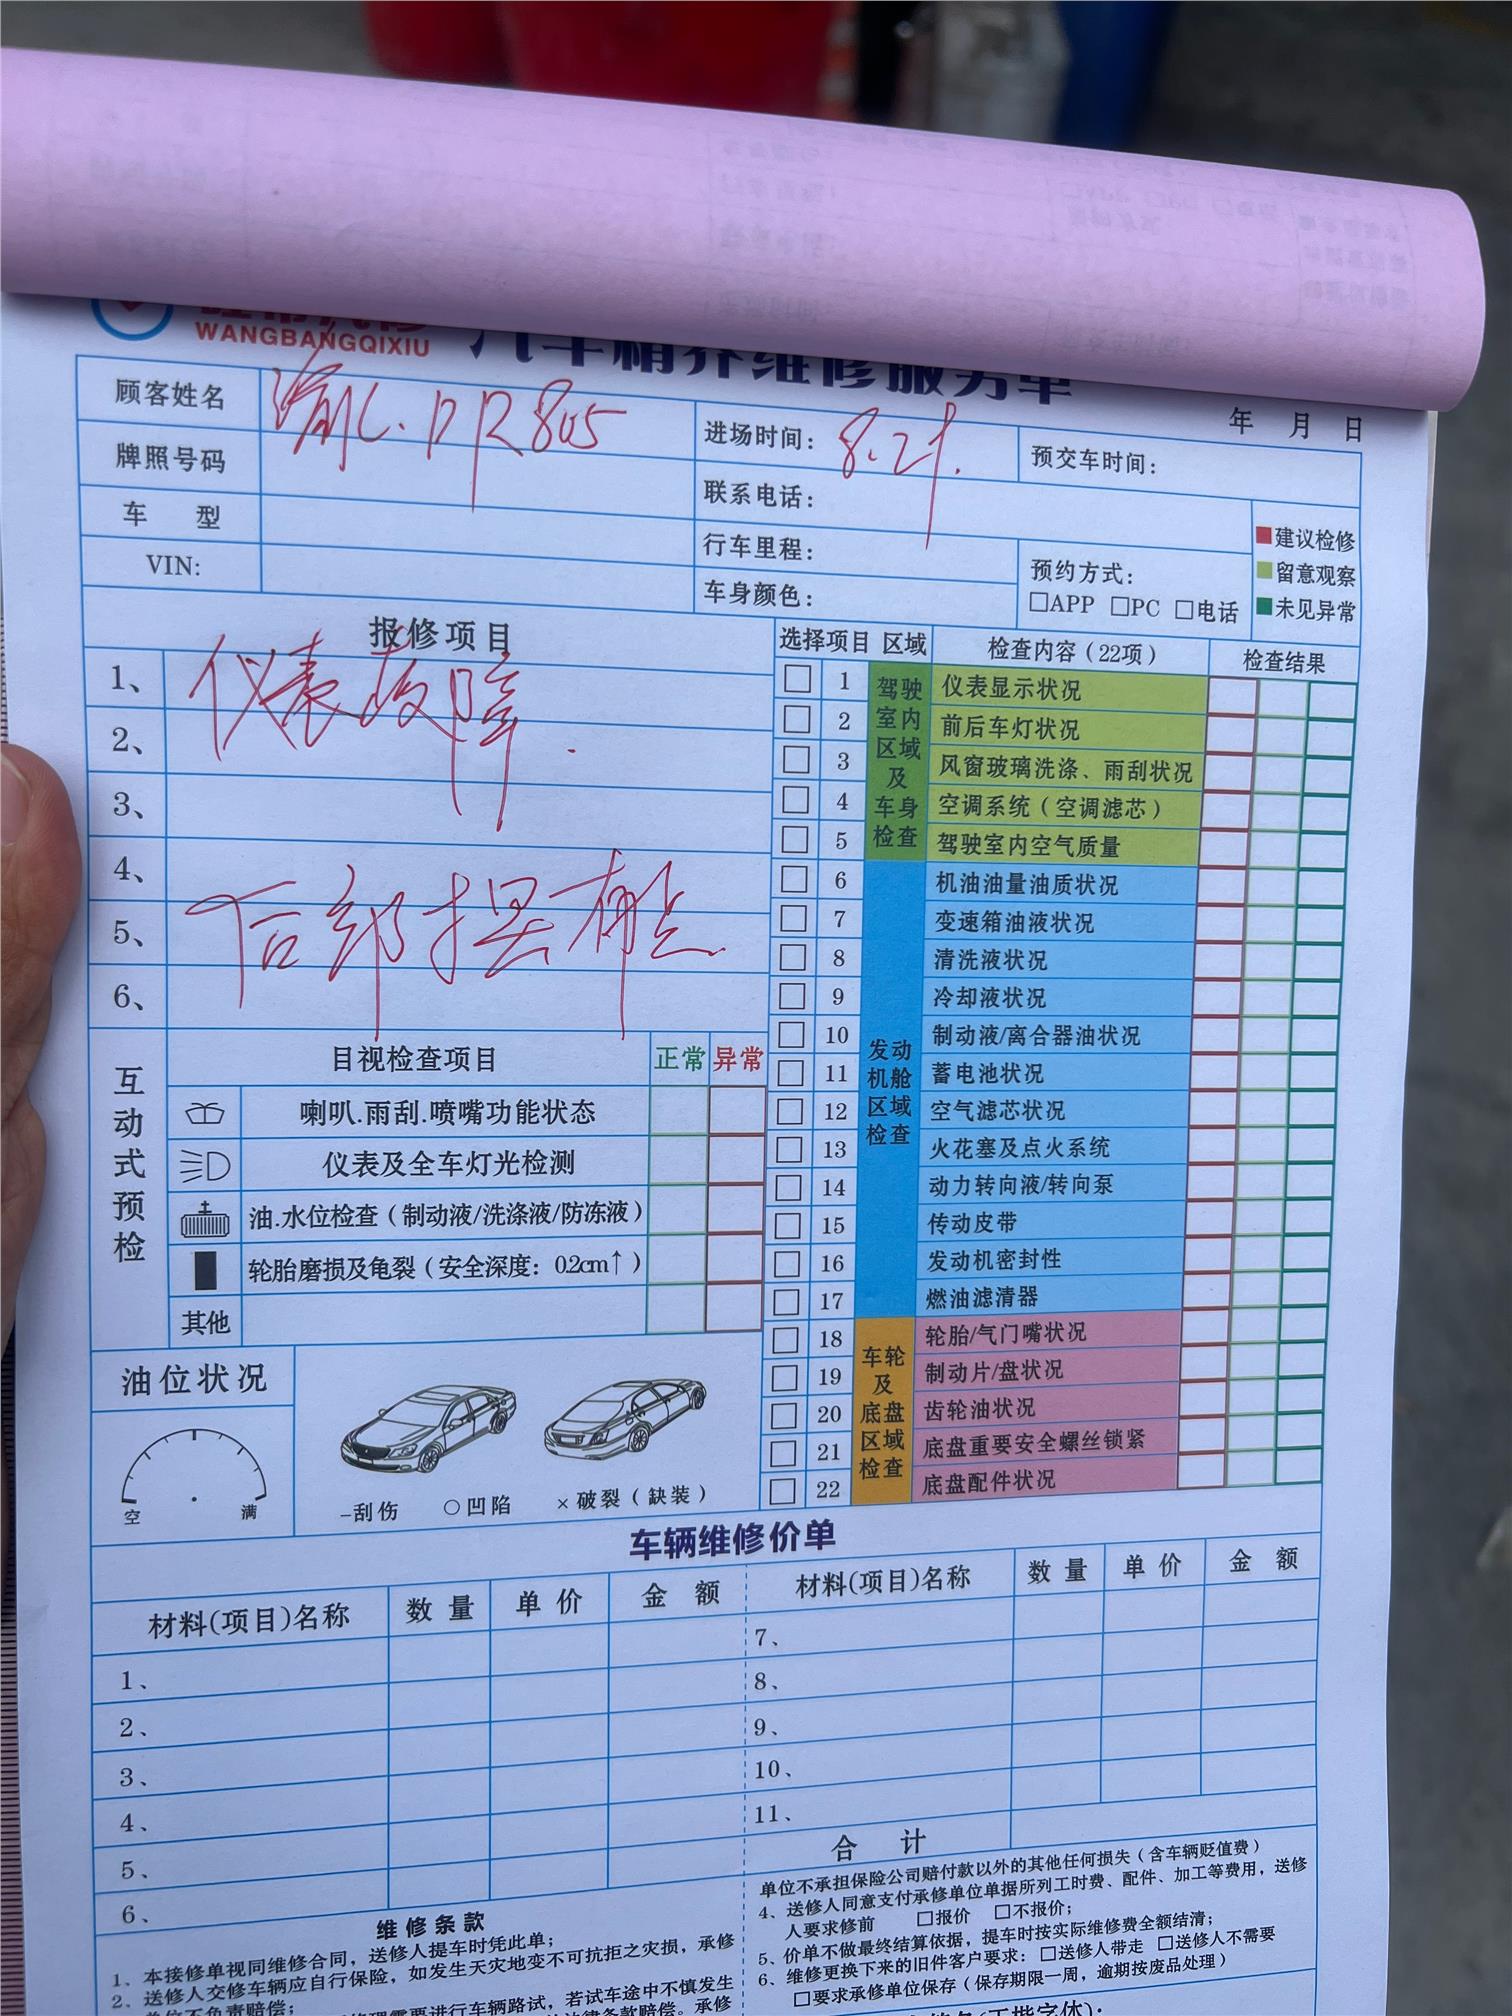 WANGBANGQIXIU 汽车精养维修服务单
年 月 日
顾客姓名 渝C·DR805 进场时间： 8.21. 预交车时间：
牌照号码
联系电话：
车 型
行车里程：
VIN:
车身颜色：
预约方式：
□APP □PC □电话
建议检修
留意观察
未见异常
报修项目
1、 仪表故障.
2、
3、
4、
5、 后部摆有点
6、
互动式预检
目视检查项目 正常 异常
喇叭.雨刮.喷嘴功能状态
仪表及全车灯光检测
油.水位检查（制动液/洗涤液/防冻液）
轮胎磨损及龟裂（安全深度：0.2cm↑）
其他
油位状况
空 满
-刮伤 ○凹陷 ×破裂（缺装）
选择项目 区域 检查内容（22项） 检查结果
驾驶室内区域及车身检查
1 仪表显示状况
2 前后车灯状况
3 风窗玻璃洗涤、雨刮状况
4 空调系统（空调滤芯）
5 驾驶室内空气质量
发动机舱区域检查
6 机油油量油质状况
7 变速箱油液状况
8 清洗液状况
9 冷却液状况
10 制动液/离合器油状况
11 蓄电池状况
12 空气滤芯状况
13 火花塞及点火系统
14 动力转向液/转向泵
15 传动皮带
16 发动机密封性
17 燃油滤清器
车轮及底盘区域检查
18 轮胎/气门嘴状况
19 制动片/盘状况
20 齿轮油状况
21 底盘重要安全螺丝锁紧
22 底盘配件状况
车辆维修价单
材料(项目)名称 数量 单价 金额 材料(项目)名称 数量 单价 金额
1、 7、
2、 8、
3、 9、
4、 10、
5、 11、
6、 合 计
维修条款
1、本接修单视同维修合同，送修人提车时凭此单；
2、送修人交修车辆应自行保险，如发生天灾地变不可抗拒之灾损，承修
单位不负责赔偿；
需要进行车辆路试，若试车途中不慎发生
律条款赔偿。承修
单位不承担保险公司赔付款以外的其他任何损失（含车辆贬值费）
4、送修人同意支付承修单位单据所列工时费、配件、加工等费用，送修
人要求修前 □报价 □不报价；
5、价单不做最终结算依据，提车时按实际维修费全额结清；
6、维修更换下来的旧件客户要求：□送修人带走 □送修人不需要
□要求承修单位保存（保存期限一周，逾期按废品处理）